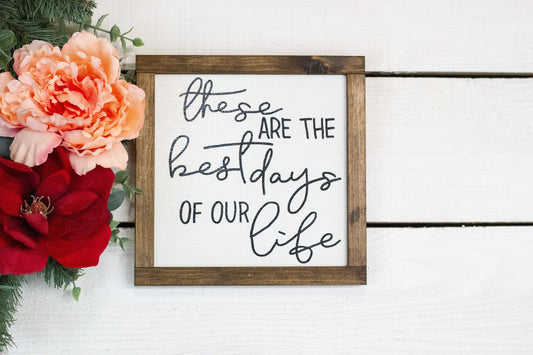 these
ARE THE
best days
OF OUR life